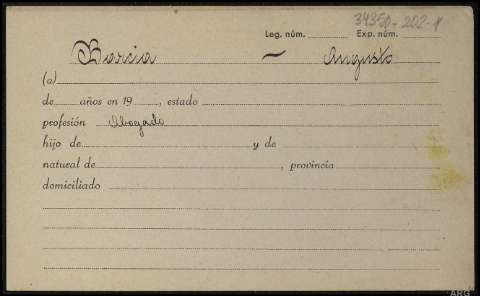 34350-202-1
Leg. núm. Exp. núm.
Barcia ~ Augusto
(a)
de años en 19 , estado
profesión Abogado
hijo de y de
natural de , provincia
domiciliado
ARG